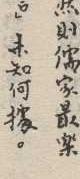 然則儒家最樂
」未知何據。